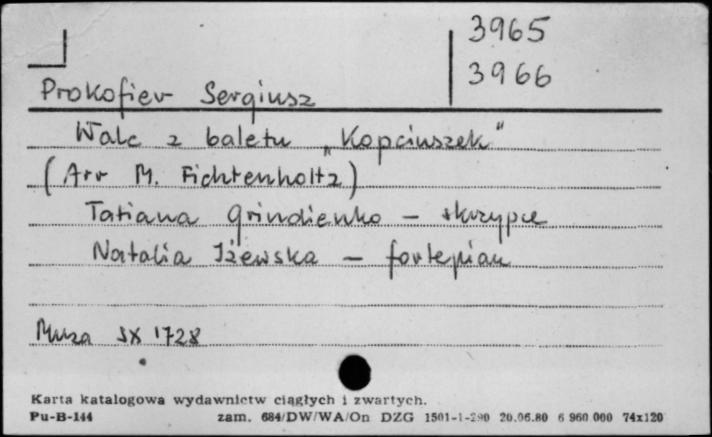 3965
3966
Prokofiev Sergiusz
Walc z baletu „Kopciuszek"
(Arr M. Fichtenholtz)
Tatiana Grindienko – skrzypce
Natalia Iżewska – fortepian
Muza SX 1728
Karta katalogowa wydawnictw ciągłych i zwartych.
Pu-B-144 zam. 684/DW/WA/On DZG 1501-1-290 20.06.80 6 960 000 74x120